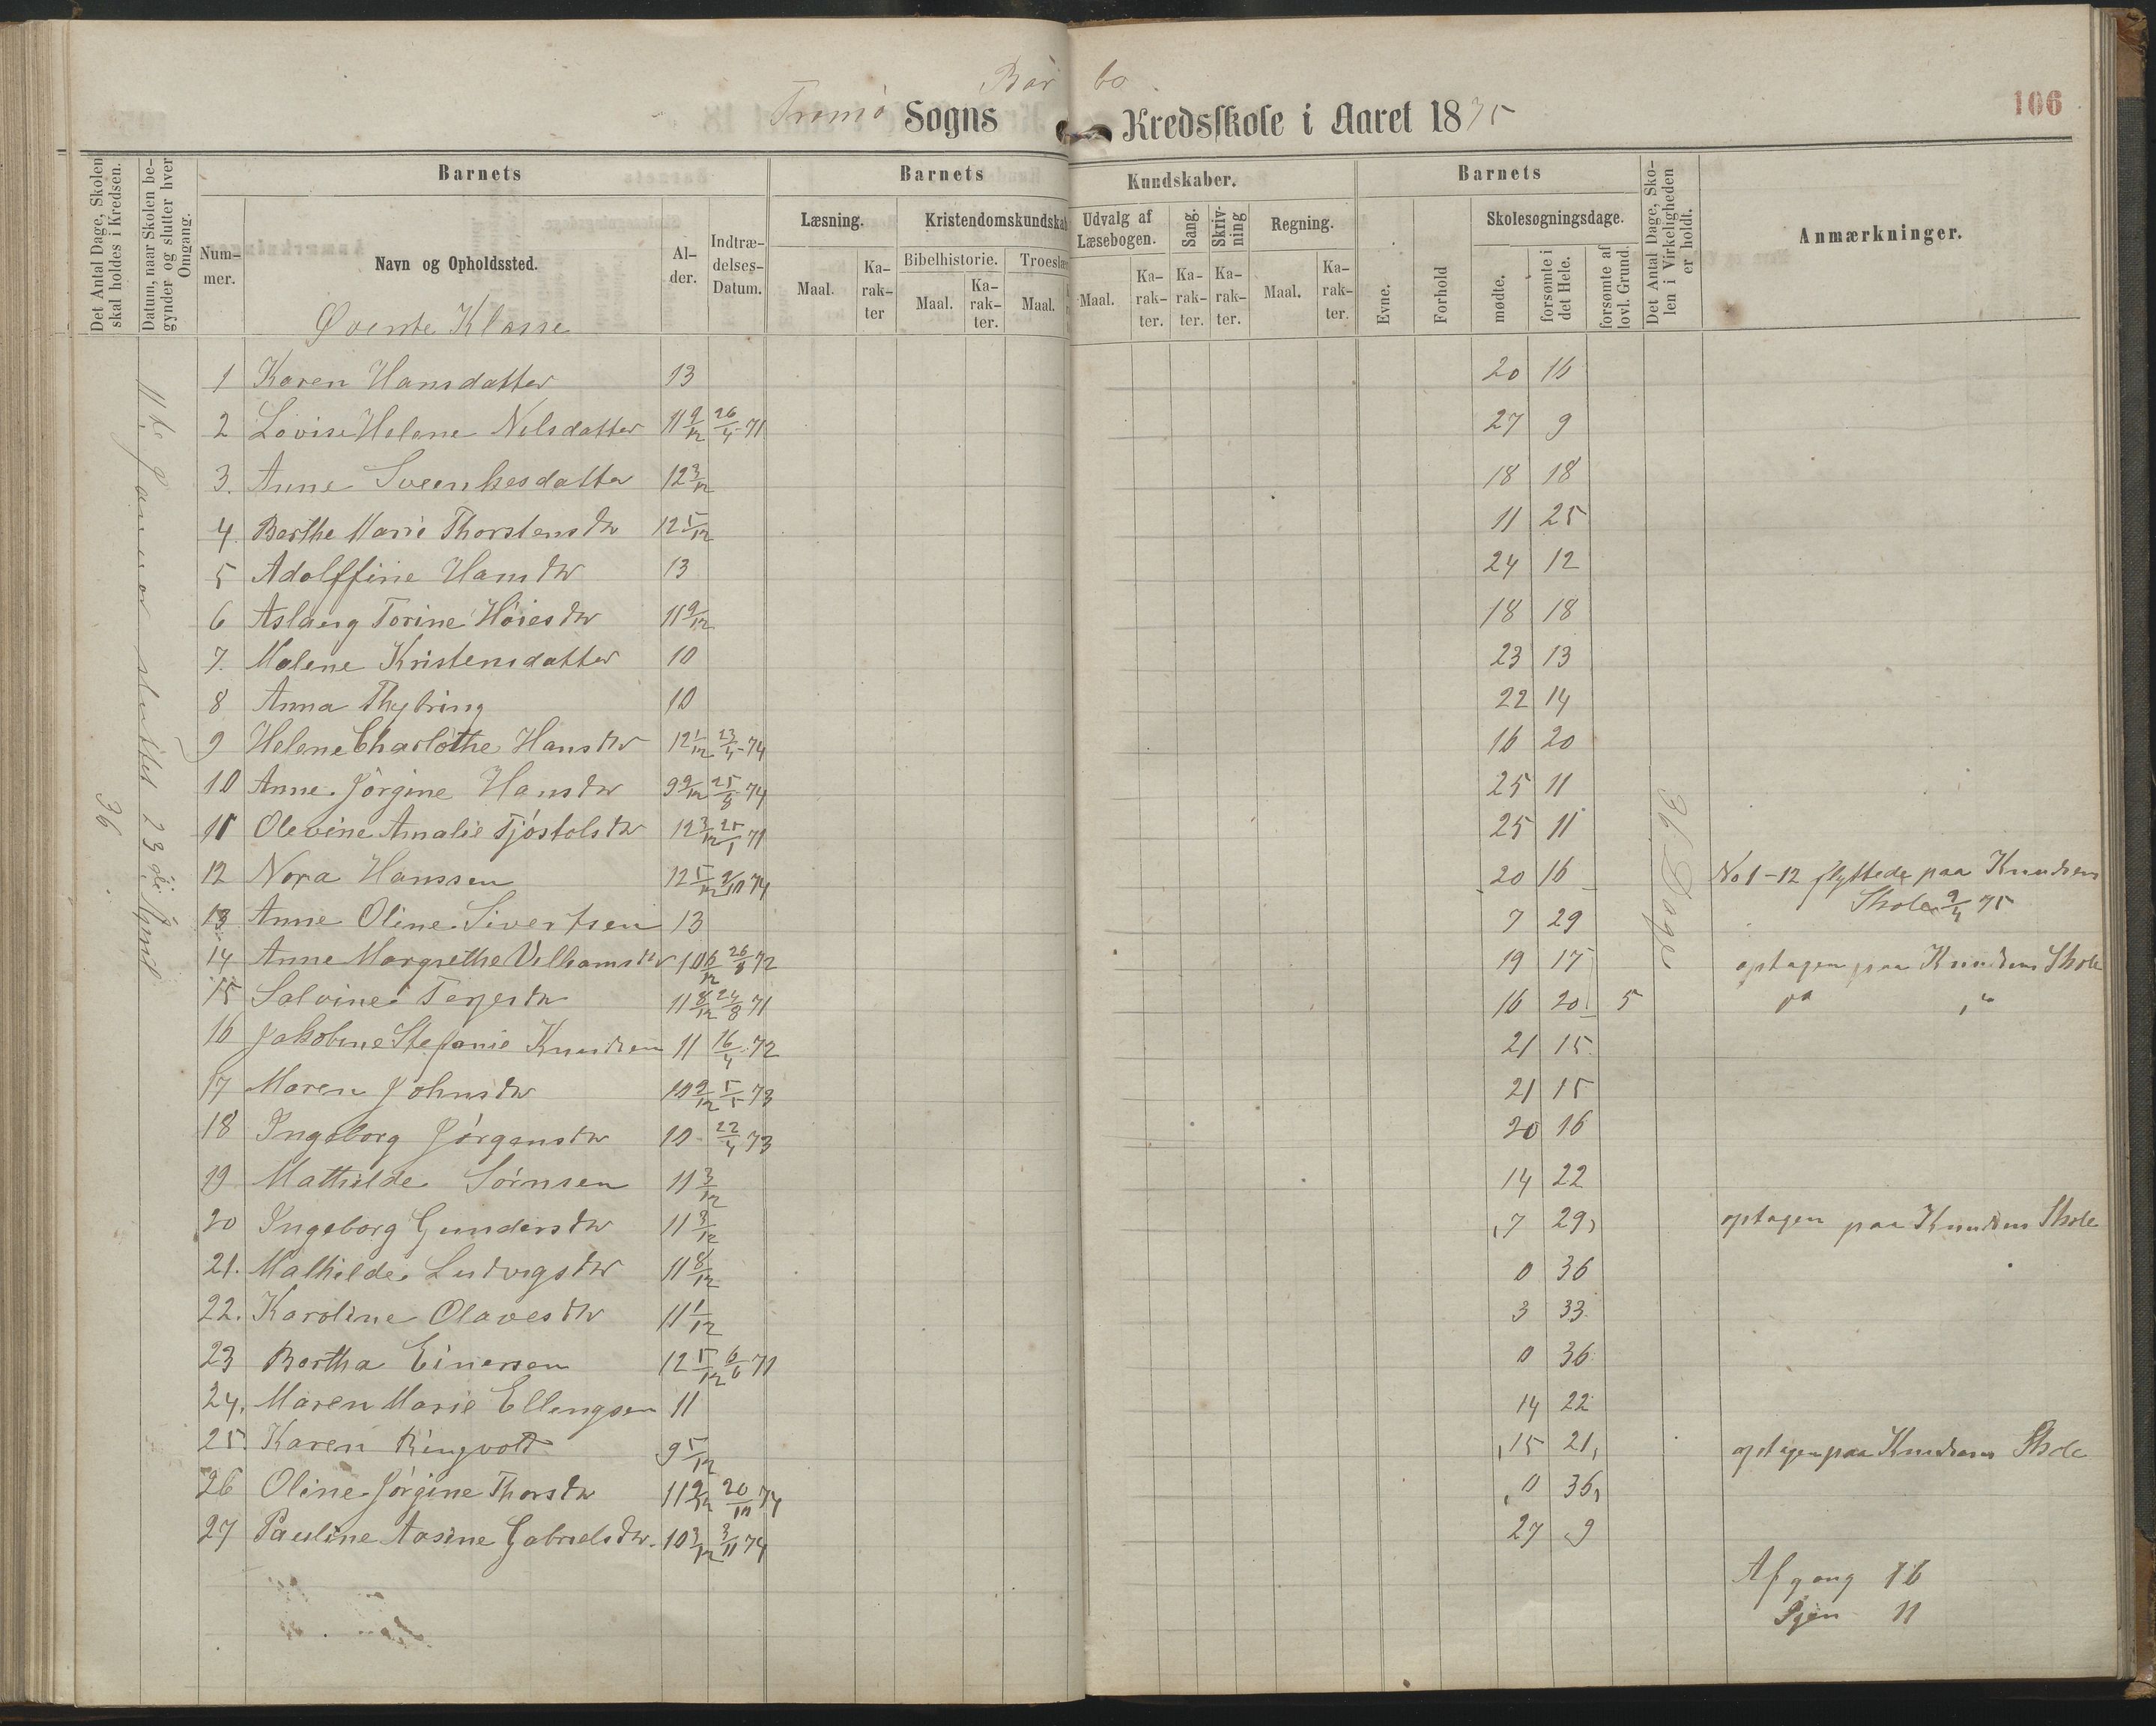 Bar bo
106
Tromø Sogns Kredsskole i Aaret 1875
Det Antal Dage, Skolen skal holdes i Kredsen.
Datum, naar Skolen begynder og slutter hver Omgang.
Barnets
Barnets Kundskaber.
Barnets
Nummer.
Navn og Opholdssted.
Alder.
Indtrædelses-Datum.
Læsning.
Kristendomskundskab
Bibelhistorie.
Troeslær
Maal. Karakter
Maal. Karakter.
Maal.
Udvalg af Læsebogen.
Maal. Karakter.
Sang. Karakter.
Skrivning Karakter.
Regning.
Maal. Karakter.
Evne.
Forhold
Skolesøgningsdage.
mødte.
forsømte i det Hele.
forsømte af lovl. Grund.
Det Antal Dage, Skolen i Virkeligheden er holdt.
Anmærkninger.
Øverste Klasse
36
11te Januar sluttet 23de April
36 Dage
1 Karen Hansdatter 13 20 16
2 Lovise Helene Nilsdatter 11 9/12 26/4-71 27 9
3. Anne Sveenkesdatter 12 3/12 18 18
4 Berthe Marie Thorstensdtr 12 5/12 11 25
5 Adolffine Hansdtr 13 24 12
6 Aslaug Torine Høiesdtr 11 9/12 18 18
7. Malene Kristensdatter 10 23 13
8 Anna Thybring 10 22 14
9 Helene Charlothe Hansdtr 12 1/12 23/4-74 16 20
10 Anne Jörgine Hansdtr 9 9/12 25/8 74 25 11
11 Olevine Amalie Tjøstolsdtr 12 3/12 25/1 71 25 11
12 Nora Hanssen 12 5/12 2/10 74 20 16 No 1-12 flyttede paa Knudsens
Skole 9/4 75
13 Anne Oline Sivertsen 13 7 29
14 Anne Margrethe Vilhamsdtr 10 6/12 26/8 72 19 17 optagen paa Knudsens Skole
15 Salvine Terjesdtr 11 8/12 24/8 71 16 20 5
16 Jakobine Stefanie Knudsen 11 16/4 72 21 15
17 Maren Johnsdtr 10 9/12 5/5 73 21 15
18 Ingeborg Jörgensdtr 10 22/4 73 20 16
19 Mathilde Sörnsen 11 3/12 14 22
20 Ingeborg Gundersdtr 11 3/12 7 29 optagen paa Knudsens Skole
21. Mathilde Ludvigsdtr 11 8/12 0 36
22. Karoline Olavesdtr 11 1/12 3 33
23 Bertha Einersen 12 5/12 6/6 71 0 36
24. Maren Marie Ellengsen 11 14 22
25. Karen Ringvold 9 5/12 15 21 optagen paa Knudsens Skole
26 Oline Jörgine Thorsdtr 11 2/12 20/10 74 0 36
27 Pauline Aasine Gabrielsdtr. 10 3/12 3/11 74 27 9
Afgang 16
Igjen 11